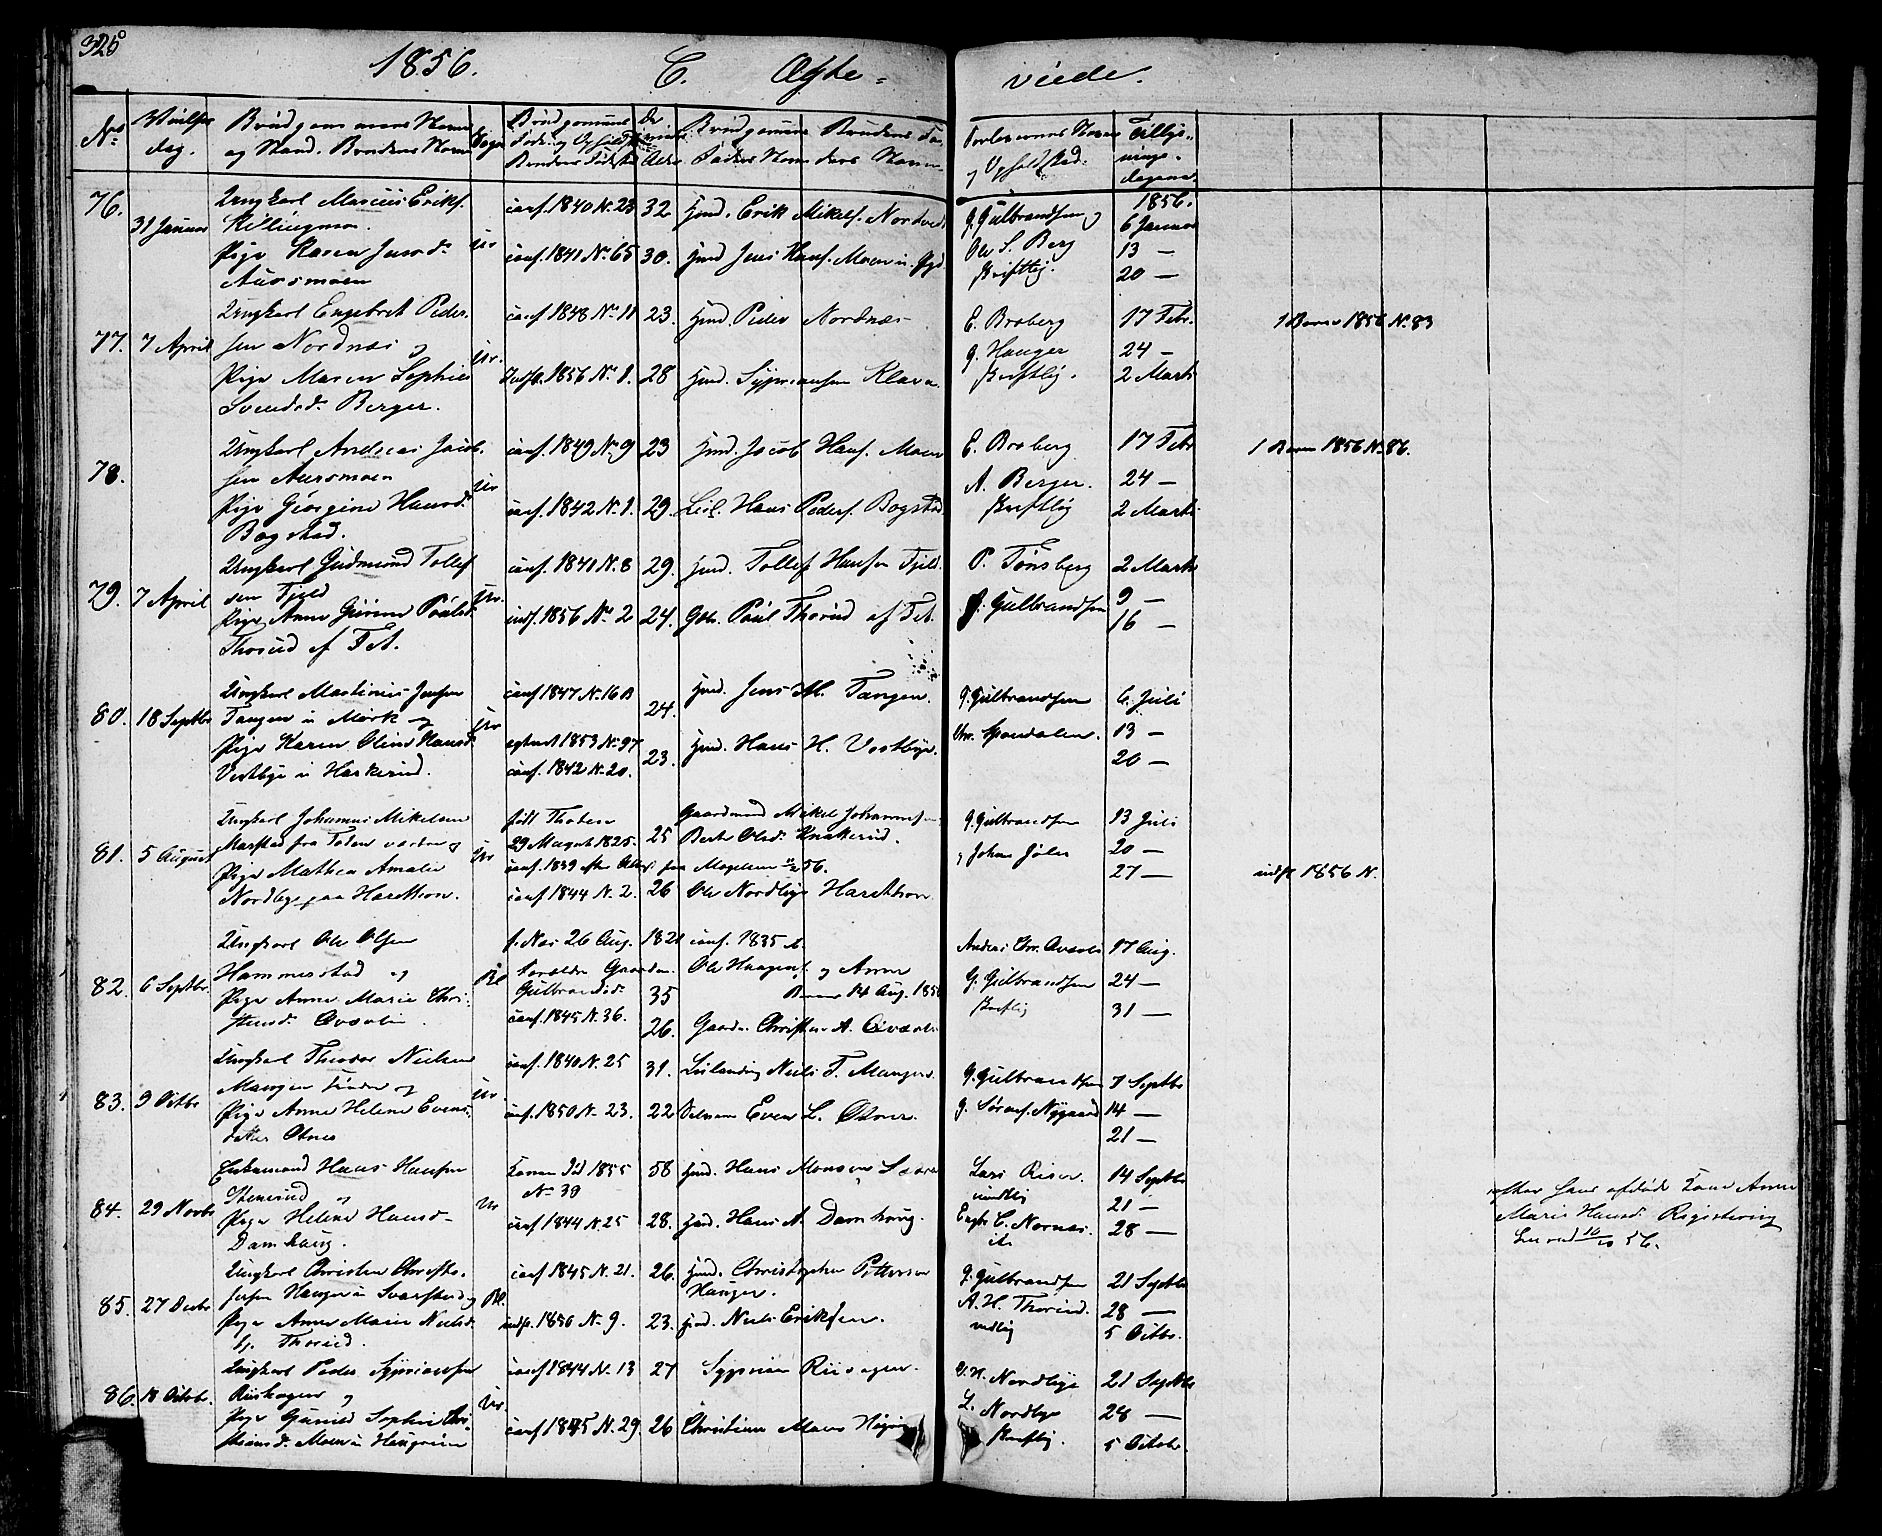 325
1856. C. Ægte= viede.
No
Vielses dag.
Brudgommens Navn og Stand. Brudens Navn
Sogn
Brudgommens Føde- og Opholdssted Brudens Fødested
Deres Alder
Brudgommens Faders Navn
Brudens Faders Navn
Forlovernes Navne og Opholdsted.
Tillysningsdagene.
76.
31 Januar
Ungkarl Marcus Eriks.
Killingmoe.
Pige Karen Jensd.
Aursmoen
Ur
conf. 1840 N. 23
conf. 1841 No 65
32
30.
Hmd. Erik Mikels. Nordved
Hmd. Jens Hans. Moen
G. Gulbrandsen og
Ole S. Berg
skriftlig.
1856.
6 Januar
13 —
20 —
77.
7 April
Ungkarl Engebret Peder
sen Nordnæs og
Pige Maren Sophie
Svendsd. Berger.
Ur.
conf 1848 No 11
Indfl. 1856 No 1.
23.
28
Hmd. Peder Nordnæs
Hmd. Sypriansen Klava
E. Broberg
G. Hauger
skriftlig.
17 Febr.
24 —
2 Marts
1 Barn 1856 N. 83
78.
Ungkarl Andreas Jacob.
sen Aursmoen
Pige Georgine Hansd.
Bogstad.
Ur
conf. 1849 No 9
conf. 1842 No 1.
23
29.
Hmd. Jacob Hans. Moen
Leil. Hans Peders. Bogstad
E. Broberg
A. Berger.
skriftlig
17 Febr
24 —
2 Marts
1 Barn 1856 No 86.
79.
7 April
Ungkarl Gudmund Tollef
sen Fjeld
Pige Anne Gurine Poulsd.
Thorud af Fet.
Ur.
conf. 1841 N. 8
indf. 1856 No 2
29.
24.
Hmd. Tollef Hansen Fjeld
Gbr. Poul Thorud af Fet.
P. Tønsberg
G. Gulbrandsen
2 Marts
9 —
16 —
80.
18 Septbr
Ungkarl Martinus Jensen
Tangen u Mork og
Pige Karen Oline Hansd.
Vestbye u Harkerud.
Ur
conf 1847 N. 16 B
1853 No 97
conf. 1842 N. 20.
24.
23.
Hmd. Jens M. Tangen.
Hmd. Hans H. Vestbye.
G. Gulbrandsen
Chr. Spændalen.
6. Juli
13 —
20 —
81.
5 August
Ungkarl Johannes Mikelsen
Marstad fra Toten og
Pige Mathea Amalie
Nordbye paa Hareton.
Ur
født Thoten
29 August 1825.
conf. 1839
conf 1844 N. 2.
25
26
Gaardmand Mikel Johannesen
Berte Olsd. Knakerud.
56.
Ole Nordbye Hareton
G. Gulbrandsen
Johan Jøler
13 Juli
20 —
27 —
indfl 1856 N.
82.
6 Septbr.
Ungkarl Ole Olsen
Hammerstad og
Pige Anne Marie Chri
stensd. Qværlin.
Bl
f. Nes 26 Aug. 1821 conf. 1835
Forældre Gaardm. Ole Haagens. og Anne
Gulbrandsd.
conf. 1845 N. 36.
35
26.
14 Aug. 185
Gaardm. Christen A. Qværlin
Anders Chr. Qværlin
G. Gulbrandsen
skriftlig
17 Aug.
24 —
31 —
83.
9 Octbr
Ungkarl Theodor Nielsen
Mangen søndre og
Pige Anne Helene Evens
datter Otnes
Ur.
conf. 1840 N. 25
conf. 1850 N. 23.
31.
22
Leilænding Niels T. Mangen.
Selveier Even L. Otnes.
G. Gulbrandsen
G. Sørens. Nygaard
7 Septbr
14 —
21 —
84.
29 Novbr
Enkemand Hans Hansen
Stenerud og
Pige Helene Hansd.
Damhaug.
Ur
Konen død 1855
No 39
conf 1844 N. 25
58
28.
Hmd. Hans Monsen
Hmd. Hans A. Damhaug.
Lars Riser
mundtlig
Engb. C. Nornæs.
14 Septbr
21 —
28 —
efter hans afdøde Kone Anne
Marie Hansd. Registrering
56.
85.
27 Decbr
Ungkarl Christen Christo.
fersen Hauger u Svarstad og
Pige Anne Marie Nielsd.
Thorud.
Bl.
conf 1845 N. 21.
indfl. 1856 No 9.
26.
23.
Hmd. Christopher Pettersen
Hauger.
Hmd. Niels Eriksen.
G. Gulbrandsen
A. H. Thorud.
mdlig
21 Septbr
28 —
5 Octbr.
86.
18 Octobr.
Ungkarl Peder Syprianssen
Riishagen og
Pige Gunild Sophie Chri
stiansd. Moen u Haugruen
Ur.
conf 1844 N. 13
conf 1845 N. 29.
27
26
Syprian Riisagen.
Christian Moen
O. H. Nordbye
L. Nordbye
skriftlig.
21 Septbr
28 —
5 Octobr